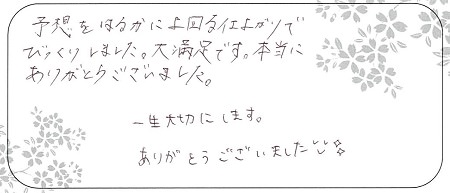 予想をはるかに上回る仕上がりで
びっくりしました。大満足です。本当に
ありがとうございました。
一生大切にします。
ありがとうございました